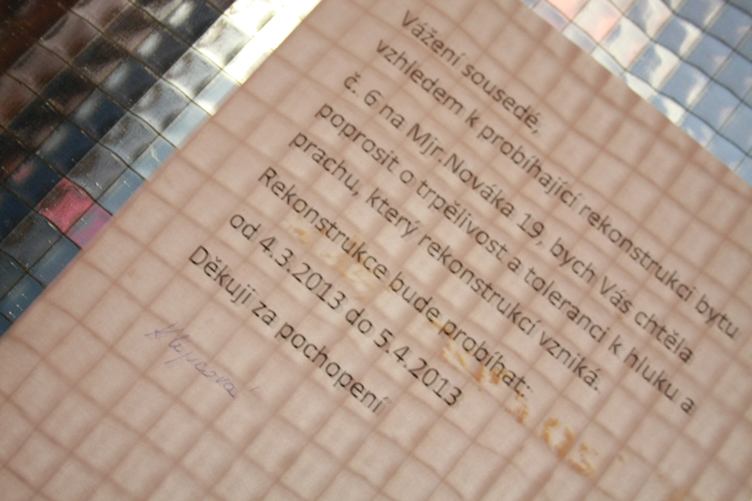 Vážení sousedé,
vzhledem k probíhající rekonstrukci bytu
č. 6 na Mjr.Nováka 19, bych Vás chtěla
poprosit o trpělivost a toleranci k hluku a
prachu, který rekonstrukcí vzniká.
Rekonstrukce bude probíhat:
od 4.3.2013 do 5.4.2013
Děkuji za pochopení